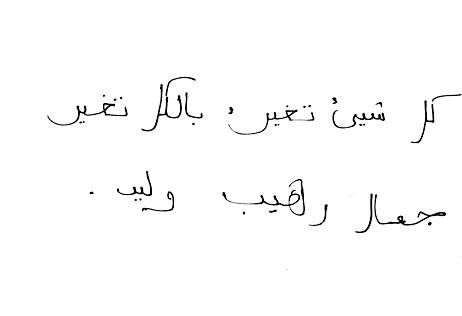 كل شيئ تغير، بالكل تغير
جمال رهيب وليد .